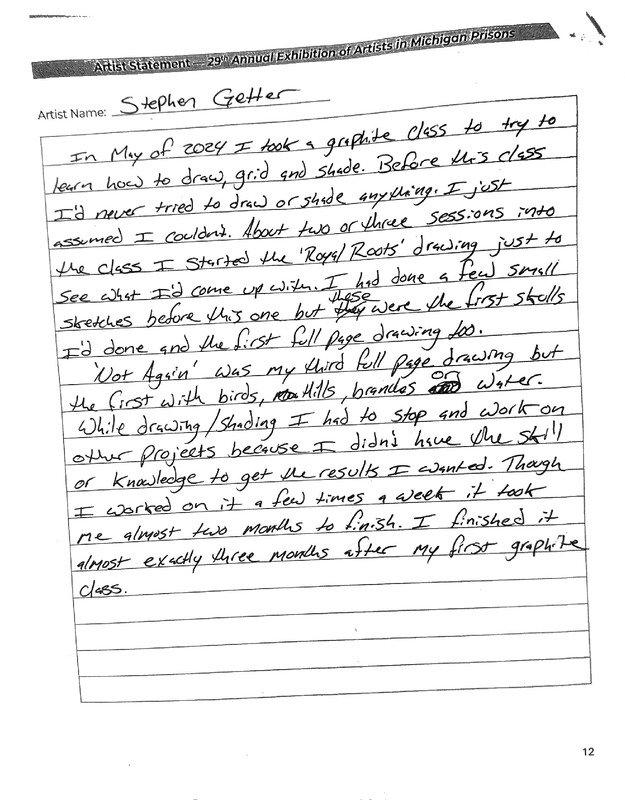 Artist Statement — 29th Annual Exhibition of Artists in Michigan Prisons
Artist Name: Stephen Getter
In May of 2024 I took a graphite class to try to
learn how to draw, grid and shade. Before this class
I'd never tried to draw or shade anything. I just
assumed I couldn't. About two or three sessions into
the class I started the 'Royal Roots' drawing just to
see what I'd come up with. I had done a few small
sketches before this one but these were the first skulls
I'd done and the first full page drawing too.
'Not Again' was my third full page drawing but
the first with birds, Hills, branches or water.
While drawing/shading I had to stop and work on
other projects because I didn't have the skill
or knowledge to get the results I wanted. Though
I worked on it a few times a week it took
me almost two months to finish. I finished it
almost exactly three months after my first graphite
class.
12